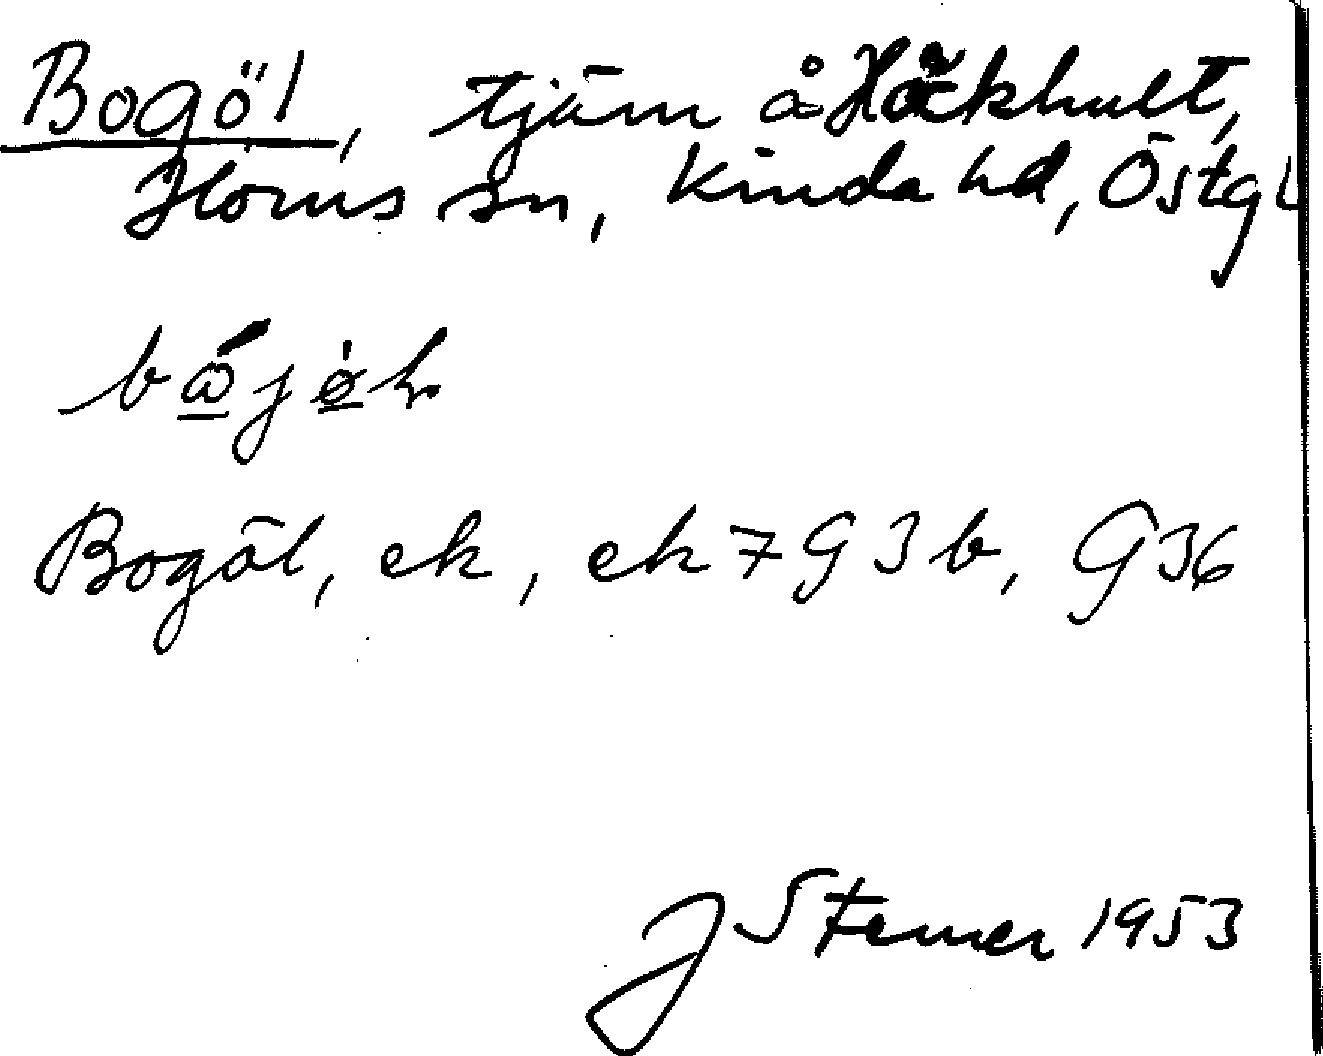 Bogöl, tjärn å Håckhult,
Horns sn, Kinda hd, Östgl
Bogöl, ek, ek 7 G 3 b, G36
J Sterner 1953